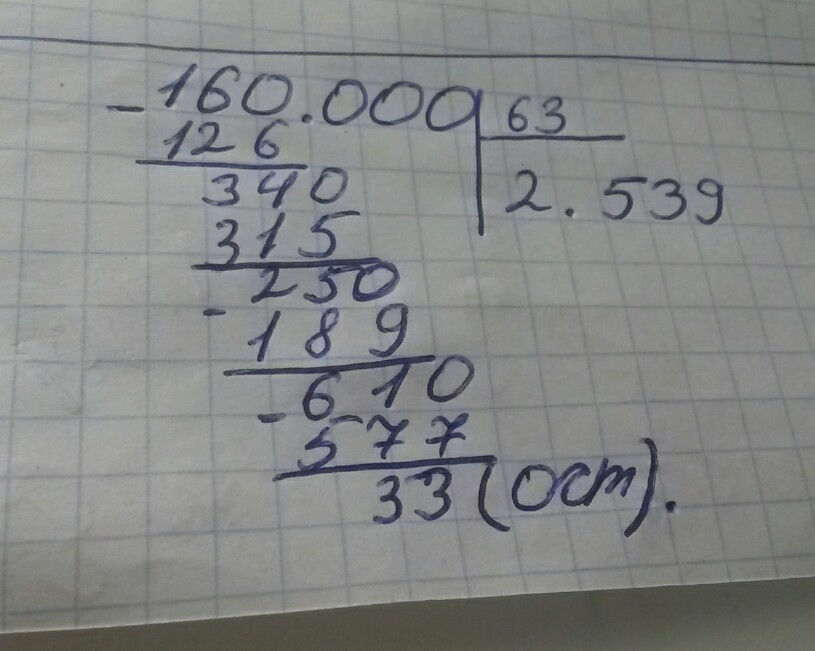 -160.000 63
126 2.539
340
315
-250
189
-610
577
33 (ост).